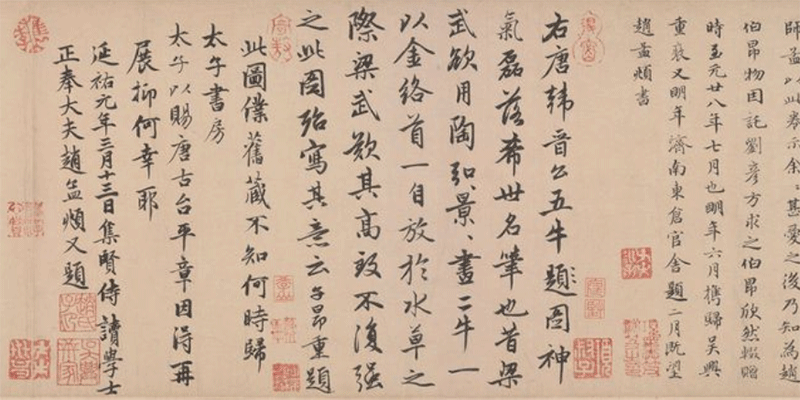 師孟以此卷示余、甚愛之後乃知為趙
伯昂物因託劉彥方求之伯昂欣然輟贈
時至元廿八年七月也明年六月攜歸吳興
重裝又明年濟南東倉官舍題二月既望
趙孟頫書
右唐韓晉公五牛題圖神
氣磊落希世名筆也昔梁
武欲用陶弘景、畫二牛一
以金絡首一自放於水草之
際梁武歎其高致不復強
之此圖殆寫其意云子昂重題
此圖僕舊藏不知何時歸
太子書房
太子以賜唐古台平章因得再
展抑何幸耶
延祐元年三月十三日集賢侍讀學士
正奉大夫趙孟頫又題